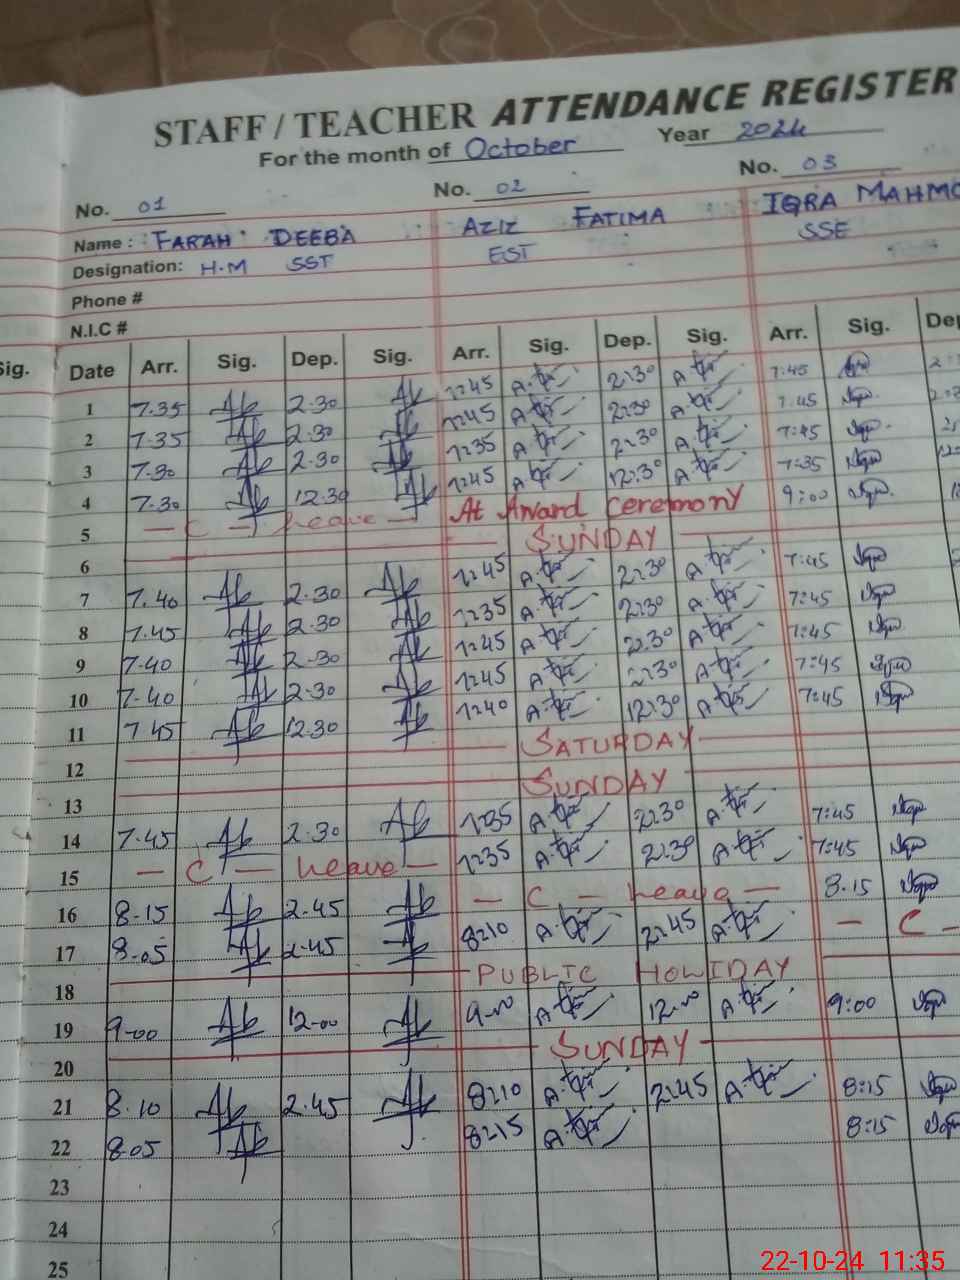 STAFF / TEACHER ATTENDANCE REGISTER
For the month of October Year 2024
No. 01 No. 02 No. 03
Name : FARAH DEEBA AZIZ FATIMA IQRA MAHMO
Designation: H.M SST EST SSE
Phone #
N.I.C #
Sig. Date Arr. Sig. Dep. Sig. Arr. Sig. Dep. Sig. Arr. Sig. Dep
1 7.35 2.30 7:45 2:30 7:45
2 7.35 2.30 7:45 2:30 7:45
3 7.30 2.30 7:35 2:30 7:45
4 7.30 12.30 7:45 12:30 7:35
5 — C — leave — At Award Ceremony 9:00
6 SUNDAY
7 7.40 2.30 7:45 2:30 7:45
8 7.45 2.30 7:35 2:30 7:45
9 7.40 2.30 7:45 2:30 7:45
10 7.40 2.30 7:45 2:30 7:45
11 7 45 12.30 7:40 12:30 7:45
12 SATURDAY
13 SUNDAY
14 7.45 2.30 7:35 2:30 7:45
15 — C — leave — 7:35 2:30 7:45
16 8.15 2.45 — C — leave — 8.15
17 8.05 2.45 8:10 2:45 — C —
18 PUBLIC HOLIDAY
19 9-00 12-00 9-00 12-00 9:00
20 SUNDAY
21 8.10 2.45 8:10 2:45 8:15
22 8.05 8:15 8:15
23
24
25
22-10-24 11:35